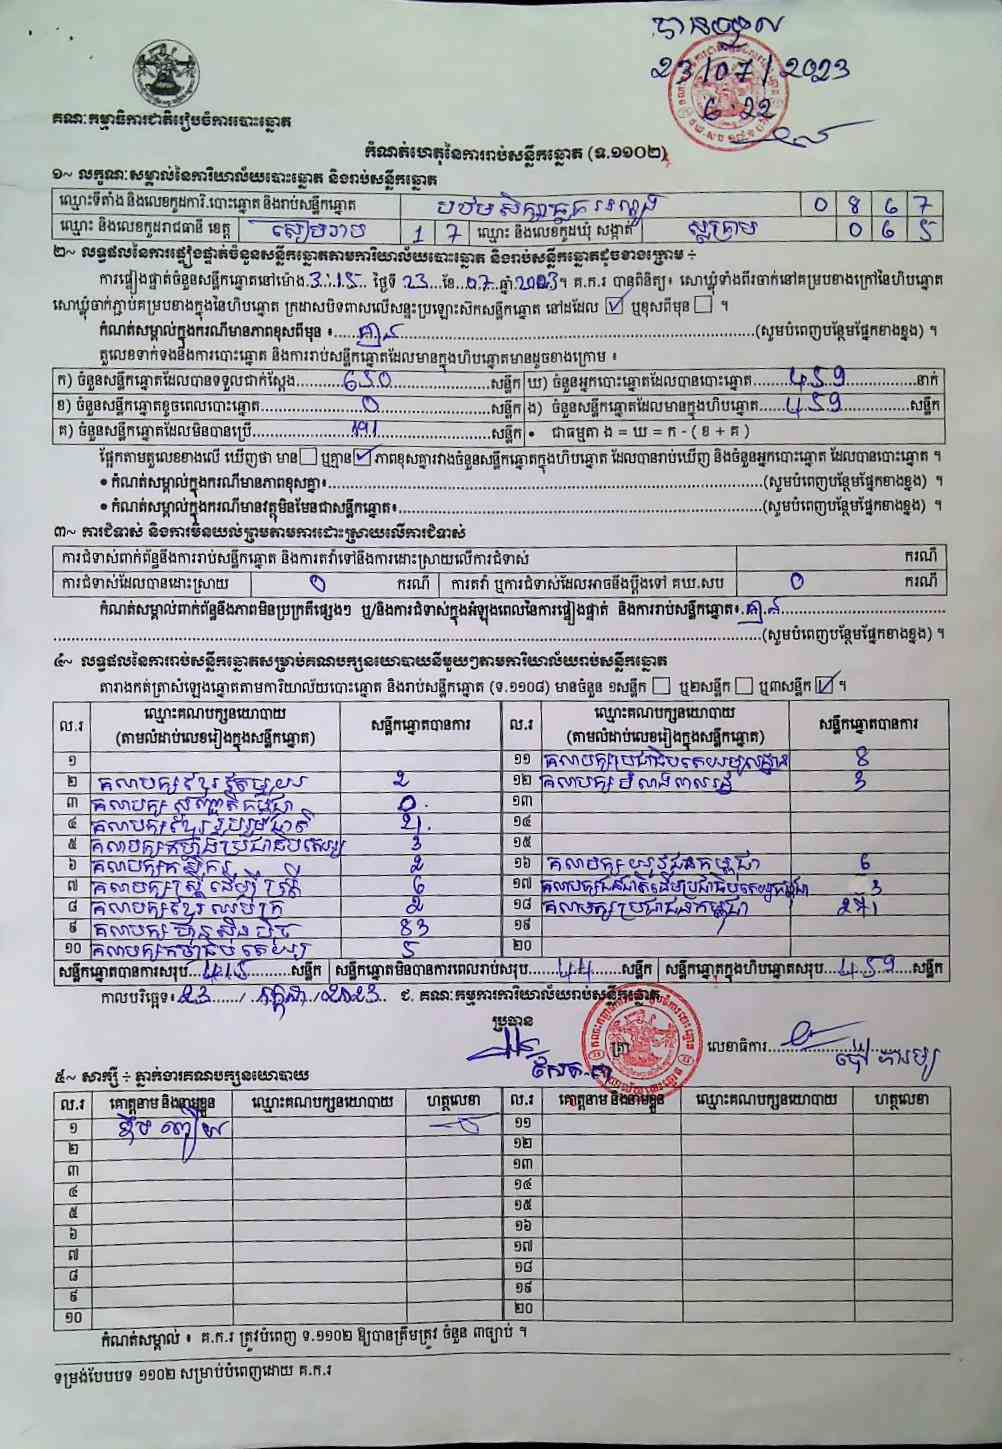 បានចូល
23/07/2023
6:22
គណៈកម្មាធិការជាតិរៀបចំការបោះឆ្នោត
កំណត់ហេតុនៃការរាប់សន្លឹកឆ្នោត (ទ.១១០២)
១~ លក្ខណៈសម្គាល់នៃការិយាល័យបោះឆ្នោត និងរាប់សន្លឹកឆ្នោត
ឈ្មោះទីតាំង និងលេខកូដការិ.បោះឆ្នោត និងរាប់សន្លឹកឆ្នោត 0 8 6 7
ឈ្មោះ និងលេខកូដរាជធានី ខេត្ត សៀមរាប 1 7 ឈ្មោះ និងលេខកូដឃុំ សង្កាត់ ស្លក្រាម 0 6 5
២~ លទ្ធផលនៃការផ្ទៀងផ្ទាត់ចំនួនសន្លឹកឆ្នោតតាមការិយាល័យបោះឆ្នោត និងរាប់សន្លឹកឆ្នោតដូចខាងក្រោម ÷
ការផ្ទៀងផ្ទាត់ចំនួនសន្លឹកឆ្នោតនៅម៉ោង 3:15 ថ្ងៃទី 23 ខែ 07 ឆ្នាំ 2023។ គ.ក.រ បានពិនិត្យ៖ សោឃ្លុំទាំងពីរចាក់នៅគម្របខាងក្រៅនៃហិបឆ្នោត
សោឃ្លុំចាក់ភ្ជាប់គម្របខាងក្នុងនៃហិបឆ្នោត ក្រដាសបិទពាសលើសន្ទះប្រឡោះស៊កសន្លឹកឆ្នោត នៅដដែល ☑ ឬខុសពីមុន ☐ ។
កំណត់សម្គាល់ក្នុងករណីមានភាពខុសពីមុន ៖ គ្មាន (សូមបំពេញបន្ថែមផ្នែកខាងខ្នង) ។
តួលេខទាក់ទងនឹងការបោះឆ្នោត និងការរាប់សន្លឹកឆ្នោតដែលមានក្នុងហិបឆ្នោតមានដូចខាងក្រោម ៖
ក) ចំនួនសន្លឹកឆ្នោតដែលបានទទួលជាក់ស្តែង 650 សន្លឹក ឃ) ចំនួនអ្នកបោះឆ្នោតដែលបានបោះឆ្នោត 459 នាក់
ខ) ចំនួនសន្លឹកឆ្នោតខូចពេលបោះឆ្នោត 0 សន្លឹក ង) ចំនួនសន្លឹកឆ្នោតដែលមានក្នុងហិបឆ្នោត 459 សន្លឹក
គ) ចំនួនសន្លឹកឆ្នោតដែលមិនបានប្រើ 191 សន្លឹក • ជាធម្មតា ង = ឃ = ក - ( ខ + គ )
ផ្អែកតាមតួលេខខាងលើ ឃើញថា មាន ☐ ឬគ្មាន ☑ ភាពខុសគ្នារវាងចំនួនសន្លឹកឆ្នោតក្នុងហិបឆ្នោត ដែលបានរាប់ឃើញ និងចំនួនអ្នកបោះឆ្នោត ដែលបានបោះឆ្នោត ។
• កំណត់សម្គាល់ក្នុងករណីមានភាពខុសគ្នា៖ (សូមបំពេញបន្ថែមផ្នែកខាងខ្នង) ។
• កំណត់សម្គាល់ក្នុងករណីមានវត្ថុមិនមែនជាសន្លឹកឆ្នោត៖ (សូមបំពេញបន្ថែមផ្នែកខាងខ្នង) ។
៣~ ការជំទាស់ និងការមិនយល់ព្រមតាមការដោះស្រាយលើការជំទាស់
ការជំទាស់ពាក់ព័ន្ធនឹងការរាប់សន្លឹកឆ្នោត និងការតវ៉ាទៅនឹងការដោះស្រាយលើការជំទាស់ ករណី
ការជំទាស់ដែលបានដោះស្រាយ 0 ករណី ការតវ៉ា ឬការជំទាស់ដែលអាចនឹងប្តឹងទៅ គឃ.សប 0 ករណី
កំណត់សម្គាល់ពាក់ព័ន្ធនឹងភាពមិនប្រក្រតីផ្សេងៗ ឬ/និងការជំទាស់ក្នុងអំឡុងពេលនៃការផ្ទៀងផ្ទាត់ និងការរាប់សន្លឹកឆ្នោត៖ គ្មាន
(សូមបំពេញបន្ថែមផ្នែកខាងខ្នង) ។
៤~ លទ្ធផលនៃការរាប់សន្លឹកឆ្នោតសម្រាប់គណបក្សនយោបាយនីមួយៗតាមការិយាល័យរាប់សន្លឹកឆ្នោត
តារាងកត់ត្រាសំឡេងឆ្នោតតាមការិយាល័យបោះឆ្នោត និងរាប់សន្លឹកឆ្នោត (ទ.១១០៨) មានចំនួន ១សន្លឹក ☐ ឬ២សន្លឹក ☐ ឬ៣សន្លឹក ☑ ។
ល.រ ឈ្មោះគណបក្សនយោបាយ (តាមលំដាប់លេខរៀងក្នុងសន្លឹកឆ្នោត) សន្លឹកឆ្នោតបានការ ល.រ ឈ្មោះគណបក្សនយោបាយ (តាមលំដាប់លេខរៀងក្នុងសន្លឹកឆ្នោត) សន្លឹកឆ្នោតបានការ
១ ១១ គណបក្សប្រជាធិបតេយ្យមូលដ្ឋាន 8
២ គណបក្សខ្មែរតែមួយ 2 ១២ គណបក្ស 3
៣ គណបក្ស សញ្ជាតិកម្ពុជា 0 ១៣
៤ គណបក្សខ្មែររួបរួមជាតិ 21 ១៤
៥ គណបក្ស ប្រជាធិបតេយ្យ 3 ១៥
៦ គណបក្សកសិករ 2 ១៦ គណបក្ស យុវជនកម្ពុជា 6
៧ គណបក្សស្ត្រីដើម្បីស្ត្រី 6 ១៧ គណបក្សជនជាតិដើមប្រជាធិបតេយ្យកម្ពុជា 3
៨ គណបក្សខ្មែរឈប់ក្រ 2 ១៨ គណបក្សប្រជាជនកម្ពុជា 271
៩ គណបក្សហ្វ៊ុនស៊ិនប៉ិច 83 ១៩
១០ គណបក្សធម្មាធិបតេយ្យ 5 ២០
សន្លឹកឆ្នោតបានការសរុប 415 សន្លឹក សន្លឹកឆ្នោតមិនបានការពេលរាប់សរុប 44 សន្លឹក សន្លឹកឆ្នោតក្នុងហិបឆ្នោតសរុប 459 សន្លឹក
កាលបរិច្ឆេទ៖ 23 / កក្កដា / 2023 ជ. គណៈកម្មការការិយាល័យរាប់សន្លឹកឆ្នោត
ប្រធាន ត្រា លេខាធិការ
៥~ សាក្សី ÷ ភ្នាក់ងារគណបក្សនយោបាយ
ល.រ គោត្តនាម និងនាមខ្លួន ឈ្មោះគណបក្សនយោបាយ ហត្ថលេខា ល.រ គោត្តនាម និងនាមខ្លួន ឈ្មោះគណបក្សនយោបាយ ហត្ថលេខា
១ ១១
២ ១២
៣ ១៣
៤ ១៤
៥ ១៥
៦ ១៦
៧ ១៧
៨ ១៨
៩ ១៩
១០ ២០
កំណត់សម្គាល់ ៖ គ.ក.រ ត្រូវបំពេញ ទ.១១០២ ឱ្យបានត្រឹមត្រូវ ចំនួន ៣ច្បាប់ ។
ទម្រង់បែបបទ ១១០២ សម្រាប់បំពេញដោយ គ.ក.រ